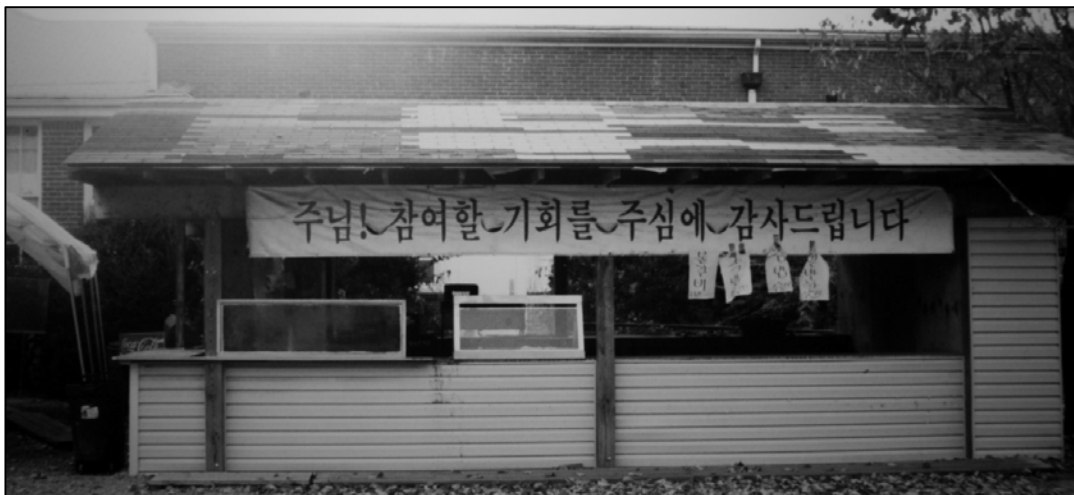 주님! 참여할 기회를 주심에 감사드립니다